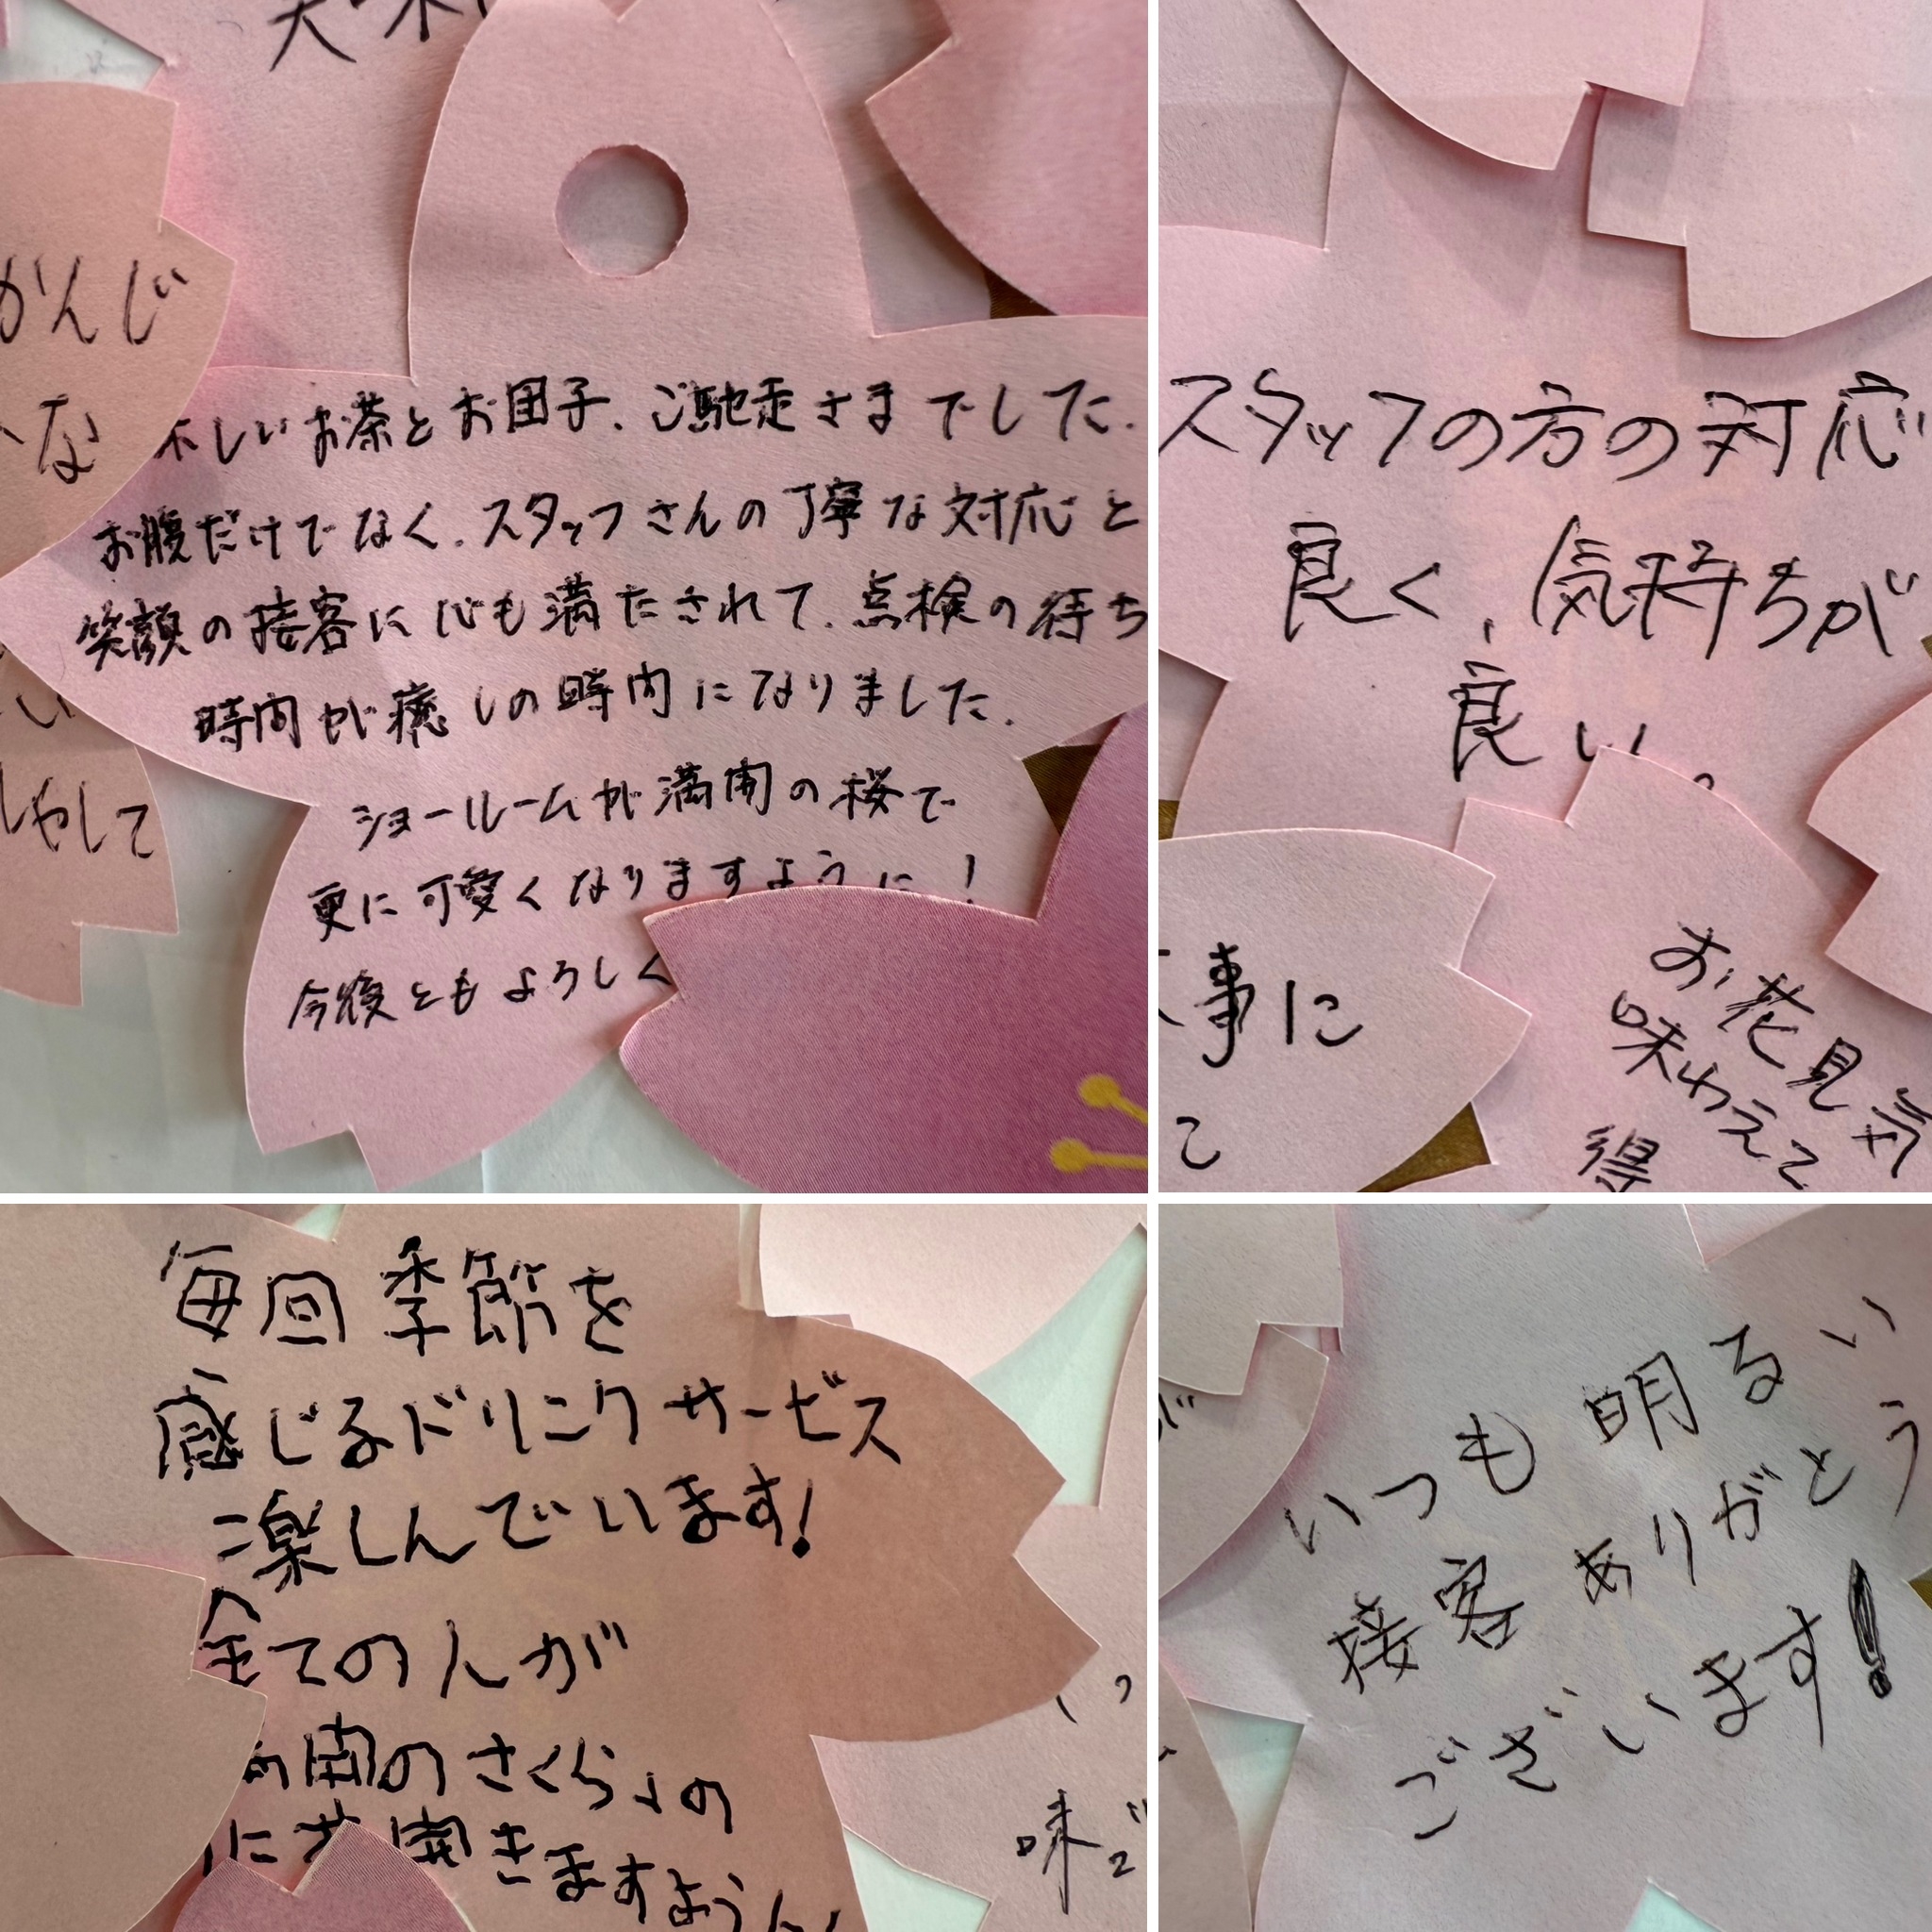 かんじ
な
しやして
味しいお茶とお団子、ご馳走さまでした。
お腹だけでなく、スタッフさんの丁寧な対応と
笑顔の接客に心も満たされて、点検の待ち
時間が癒しの時間になりました。
ショールームが満開の桜で
更に可愛くなりますように！
今後ともよろしく
スタッフの方の対応
良く、気持ちが
良い。
事に
て
お花見気
味わえて
得
毎回季節を
感じるドリンクサービス
楽しんでいます！
全ての人が
満開のさくらの
に花開きますように
味
いつも明るい
接客ありがとう
ございます！